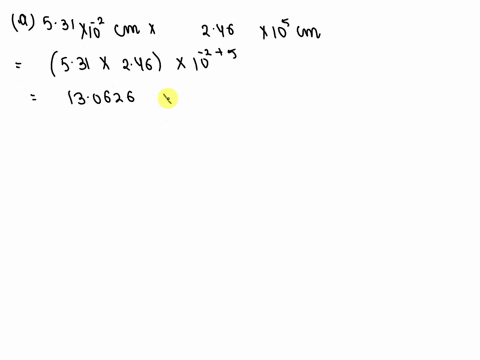 (a) 5.31 × 10⁻² cm × 2.46 × 10⁵ cm
= (5.31 × 2.46) × 10⁻²⁺⁵
= 13.0626